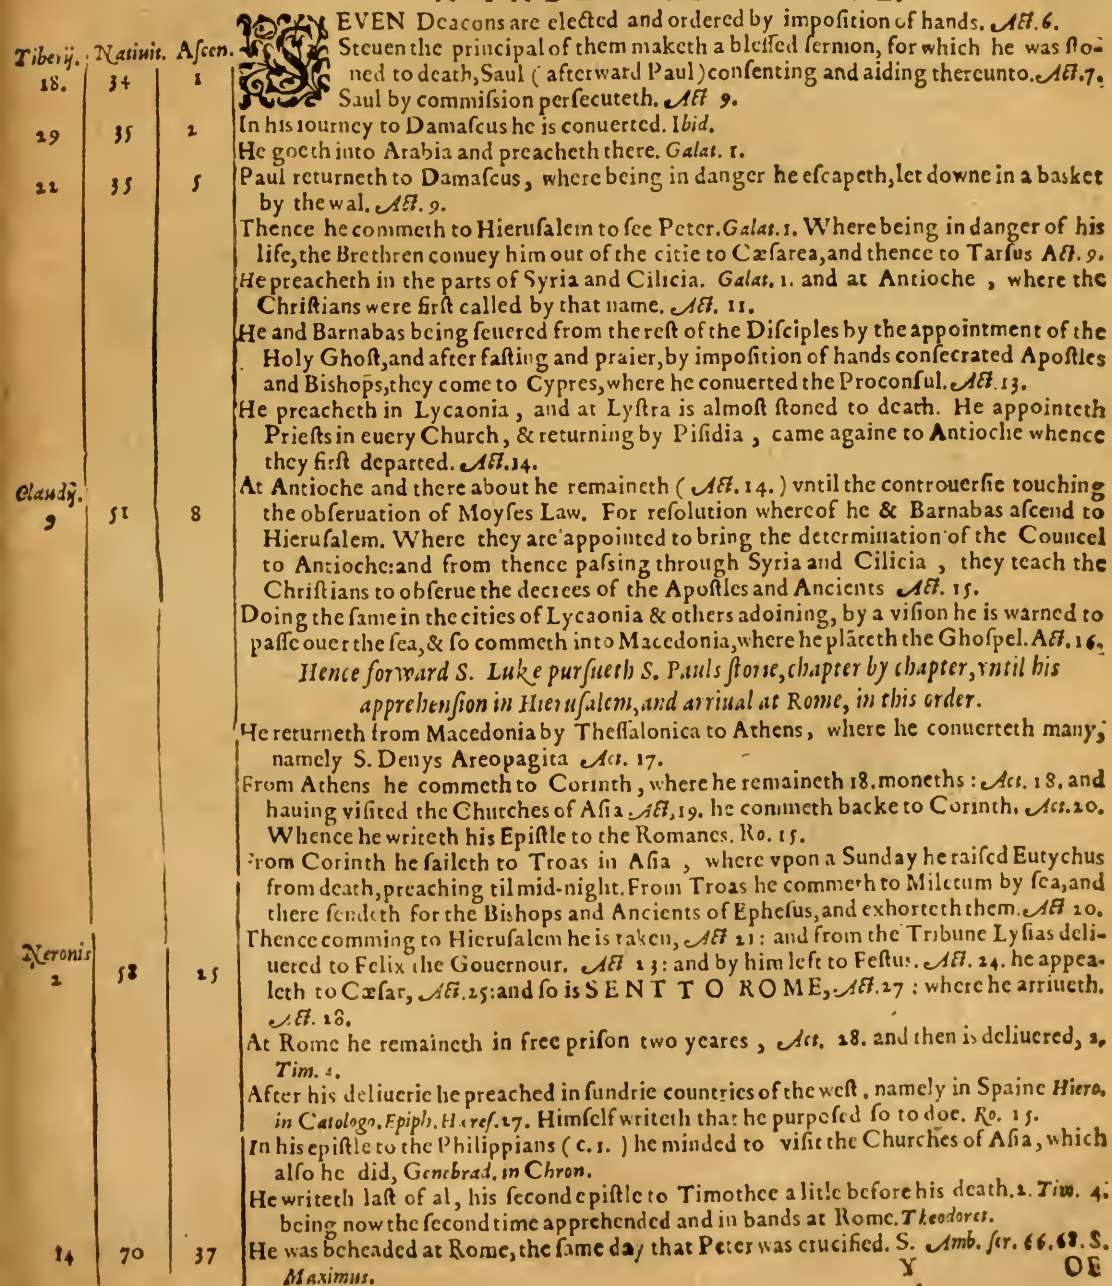 SEVEN Deacons are elected and ordered by impoſition of hands. Act. 6.
Tiberij. Natiuit. Aſcen. Steuen the principal of them maketh a bleſſed ſermon, for which he was ſto-
18. 34 1 ned to death, Saul (afterward Paul) conſenting and aiding thereunto. Act. 7.
Saul by commiſsion perſecuteth. Act 9.
29 35 2 In his iourney to Damaſcus he is conuerted. Ibid.
He goeth into Arabia and preacheth there. Galat. 1.
22 35 5 Paul returneth to Damaſcus, where being in danger he eſcapeth, let downe in a basket
by the wal. Act. 9.
Thence he commeth to Hieruſalem to ſee Peter. Galat. 1. Where being in danger of his
life, the Brethren conuey him out of the citie to Cæſarea, and thence to Tarſus Act. 9.
He preacheth in the parts of Syria and Cilicia. Galat. 1. and at Antioche, where the
Chriſtians were firſt called by that name. Act. 11.
He and Barnabas being ſeuered from the reſt of the Diſciples by the appointment of the
Holy Ghoſt, and after faſting and praier, by impoſition of hands conſecrated Apoſtles
and Bishops, they come to Cypres, where he conuerted the Proconſul. Act. 13.
He preacheth in Lycaonia, and at Lyſtra is almoſt ſtoned to death. He appointeth
Prieſts in euery Church, & returning by Piſidia, came againe to Antioche whence
they firſt departed. Act. 14.
Claudij. At Antioche and there about he remaineth (Act. 14.) vntil the controuerſie touching
9 51 8 the obſeruation of Moyſes Law. For reſolution whereof he & Barnabas aſcend to
Hieruſalem. Where they are appointed to bring the determination of the Councel
to Antioche: and from thence paſsing through Syria and Cilicia, they teach the
Chriſtians to obſerue the decrees of the Apoſtles and Ancients Act. 15.
Doing the ſame in the cities of Lycaonia & others adoining, by a viſion he is warned to
paſſe ouer the ſea, & ſo commeth into Macedonia, where he plāteth the Ghoſpel. Act. 16.
Hence forward S. Luke purſueth S. Pauls ſtorie, chapter by chapter, vntil his
apprehenſion in Hieruſalem, and arriual at Rome, in this order.
He returneth from Macedonia by Theſſalonica to Athens, where he conuerteth many,
namely S. Denys Areopagita Act. 17.
From Athens he commeth to Corinth, where he remaineth 18. moneths: Act. 18. and
hauing viſited the Churches of Aſia Act. 19. he commeth backe to Corinth. Act. 20.
Whence he writeth his Epiſtle to the Romanes. Ro. 15.
From Corinth he ſaileth to Troas in Aſia, where vpon a Sunday he raiſed Eutychus
from death, preaching til mid-night. From Troas he commeth to Miletum by ſea, and
there ſendeth for the Bishops and Ancients of Epheſus, and exhorteth them. Act 20.
Neronis Thence comming to Hieruſalem he is taken, Act 21: and from the Tribune Lyſias deli-
2 58 25 uered to Felix the Gouernour. Act 23: and by him left to Feſtus. Act. 24. he appea-
leth to Cæſar, Act. 25: and ſo is SENT TO ROME, Act. 27: where he arriueth.
Act. 28.
At Rome he remaineth in free priſon two yeares, Act. 28. and then is deliuered, 2.
Tim. 4.
After his deliuerie he preached in ſundrie countries of the weſt, namely in Spaine Hiero.
in Catologo. Epiph. Hæreſ. 27. Himſelf writeth that he purpoſed ſo to doe. Ro. 15.
In his epiſtle to the Philippians (c. 1.) he minded to viſit the Churches of Aſia, which
alſo he did, Genebrad. in Chron.
He writeth laſt of al, his ſecond epiſtle to Timothee a litle before his death. 2. Tim. 4.
being now the ſecond time apprehended and in bands at Rome. Theodoret.
14 70 37 He was beheaded at Rome, the ſame day that Peter was crucified. S. Amb. ſer. 66. 68. S.
Maximus.
Y OF